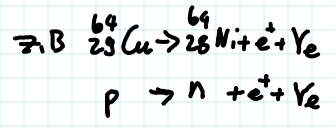 z.B ⁶⁴₂₉Cu → ⁶⁴₂₈Ni + e⁺ + νₑ
p → n + e⁺ + νₑ